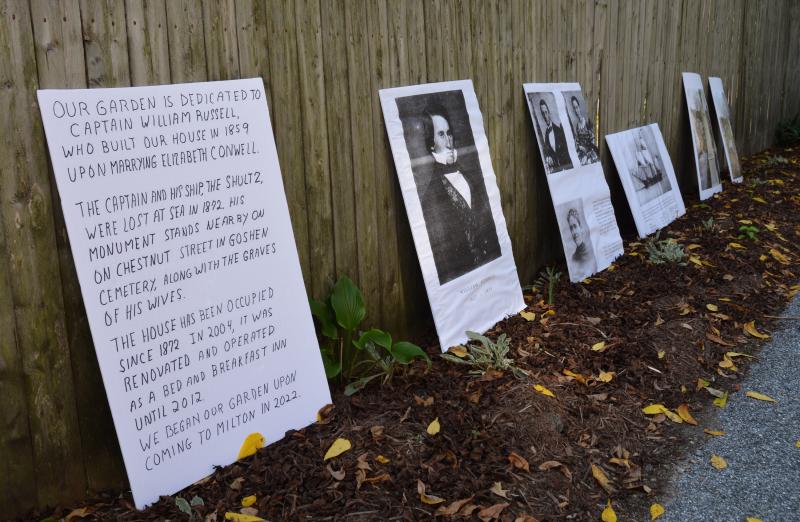 OUR GARDEN IS DEDICATED TO
CAPTAIN WILLIAM RUSSELL,
WHO BUILT OUR HOUSE IN 1859
UPON MARRYING ELIZABETH CONWELL.
THE CAPTAIN AND HIS SHIP, THE SHULTZ,
WERE LOST AT SEA IN 1872. HIS
MONUMENT STANDS NEARBY ON
ON CHESTNUT STREET IN GOSHEN
CEMETERY, ALONG WITH THE GRAVES
OF HIS WIVES.
THE HOUSE HAS BEEN OCCUPIED
SINCE 1872. IN 2004, IT WAS
RENOVATED AND OPERATED
AS A BED AND BREAKFAST INN
UNTIL 2012.
WE BEGAN OUR GARDEN UPON
COMING TO MILTON IN 2022.
WILLIAM